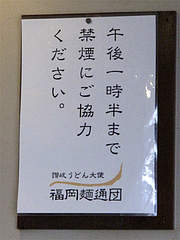 午後一時半まで
禁煙にご協力
ください。
讃岐うどん大使
福岡麺通団